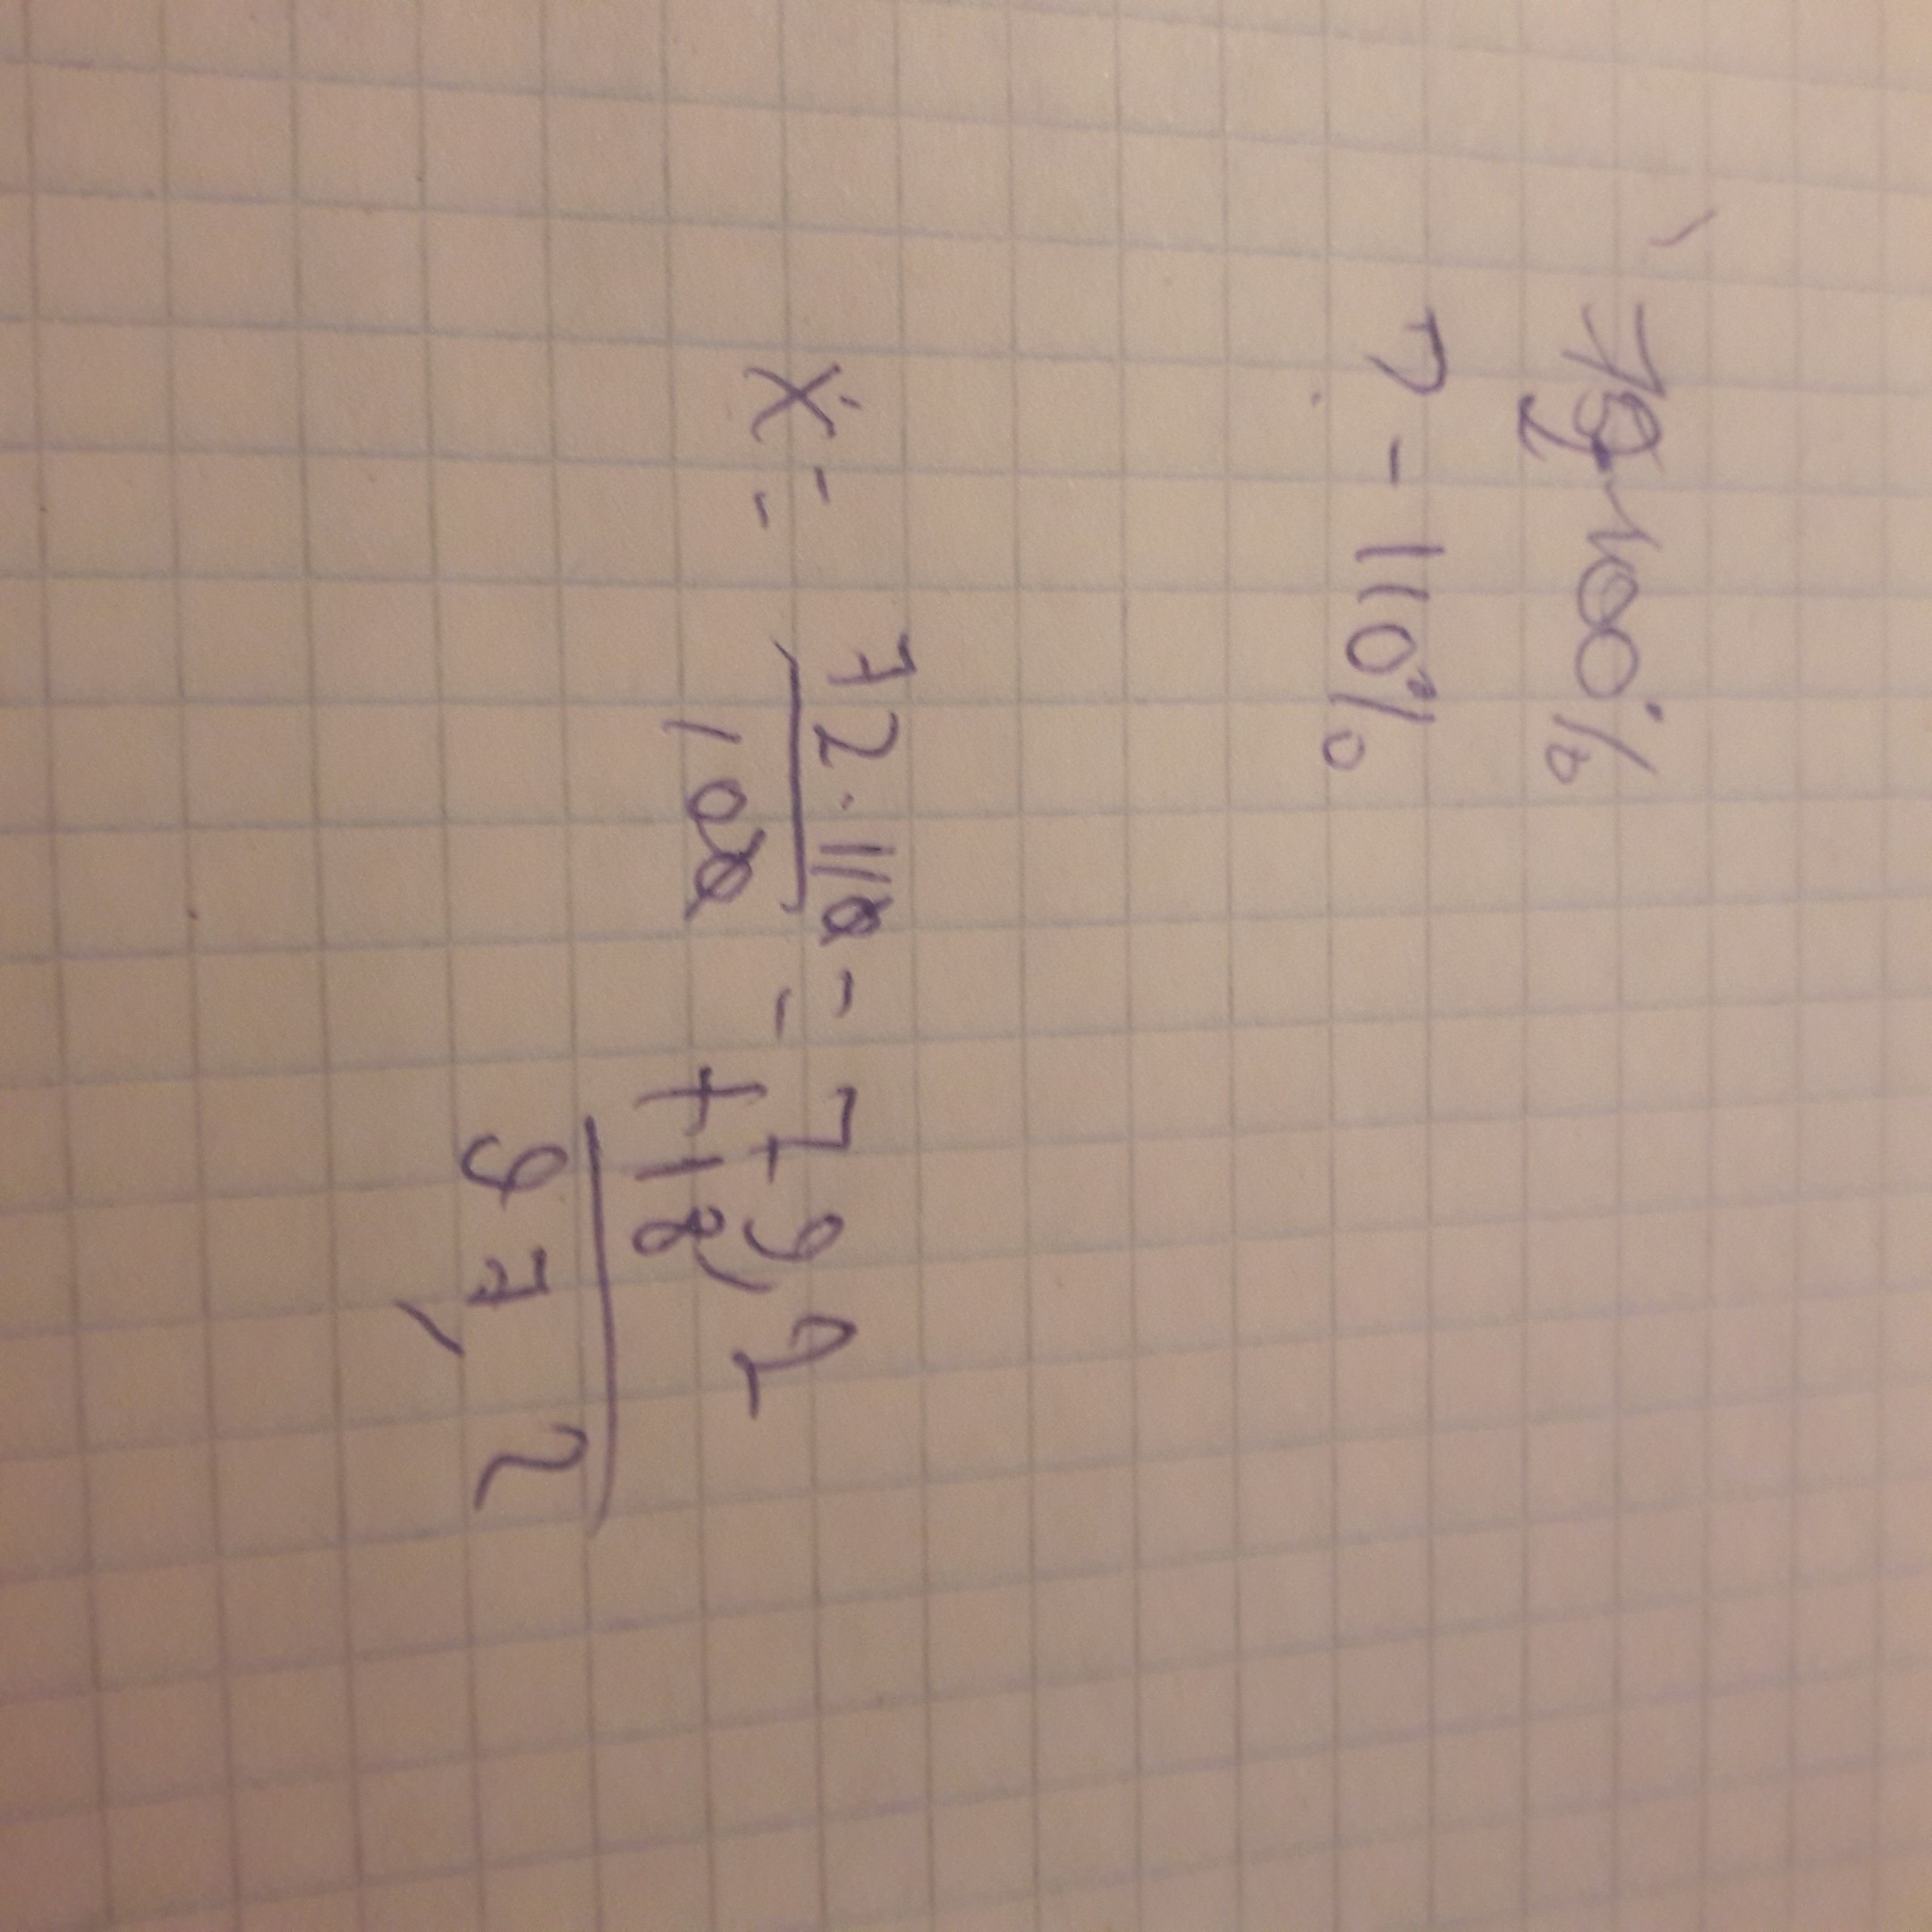 72 - 100%
? - 110%
x = 72 · 110 / 100 = 79,2
+ 18,
97,2